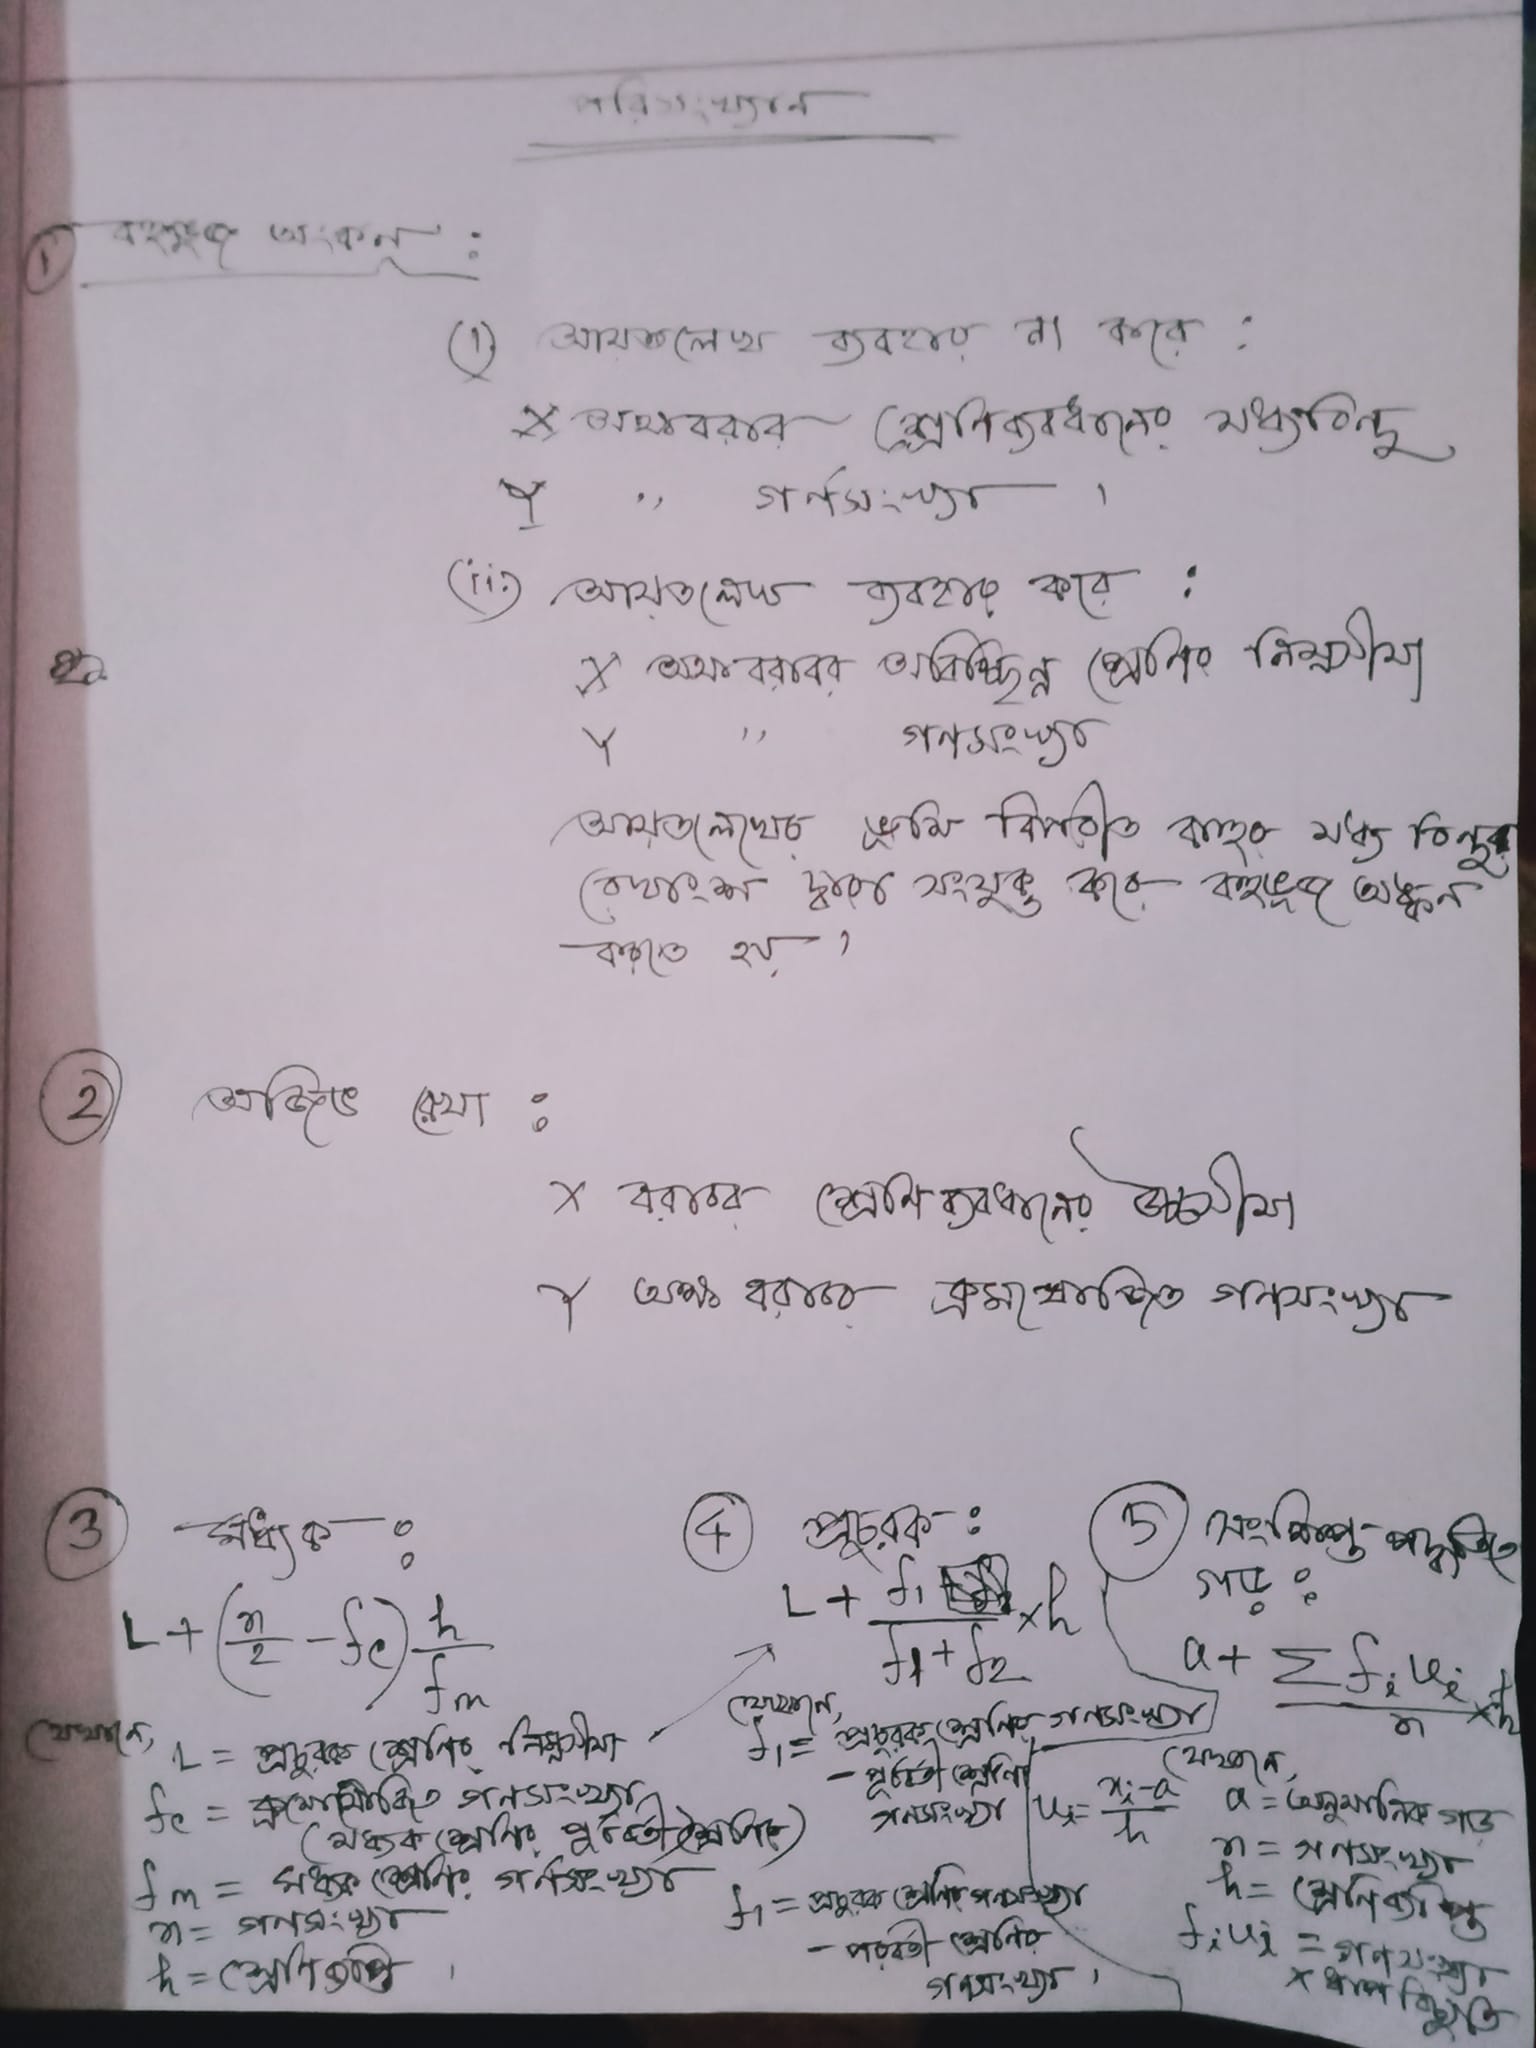 পরিসংখ্যান
① বহুভুজ অংকন :
(i) আয়তলেখ ব্যবহার না করে :
X অক্ষ বরাবর শ্রেণিব্যবধানের মধ্যবিন্দু
Y " গণসংখ্যা ।
(ii) আয়তলেখ ব্যবহার করে :
X অক্ষ বরাবর অবিচ্ছিন্ন শ্রেণির নিম্নসীমা
Y " গণসংখ্যা
আয়তলেখের ভূমি বিপরীত বাহুর মধ্য বিন্দুর
রেখাংশ দ্বারা সংযুক্ত করে বহুভূজ অঙ্কন
করতে হয় ।
② অজিভ রেখা :
X বরাবর শ্রেণিব্যবধানের উচ্চসীমা
Y অক্ষ বরাবর ক্রমযোজিত গণসংখ্যা
③ মধ্যক :
L + (n/2 - fc) h/fm
যেখানে,
L = প্রচুরক শ্রেণির নিম্নসীমা
fc = ক্রমযোজিত গণসংখ্যা
(মধ্যক শ্রেণির পূর্ববর্তী শ্রেণির)
fm = মধ্যক শ্রেণির গণসংখ্যা
n = গণসংখ্যা
h = শ্রেণিব্যাপ্তি ।
④ প্রচুরক :
L + f1/(f1 + f2) × h
যেখানে,
f1 = প্রচুরক শ্রেণির গণসংখ্যা
- পূর্ববর্তী শ্রেণির
গণসংখ্যা
f1 = প্রচুরক শ্রেণির গণসংখ্যা
- পরবর্তী শ্রেণির
গণসংখ্যা ।
⑤ সংক্ষিপ্ত পদ্ধতিতে
গড় :
a + Σ fi ui / n × h
যেখানে,
ui = (xi - a)/h
a = অনুমানিক গড়
n = গণসংখ্যা
h = শ্রেণিব্যাপ্তি
fi ui = গণসংখ্যা
× ধাপ বিচ্যুতি